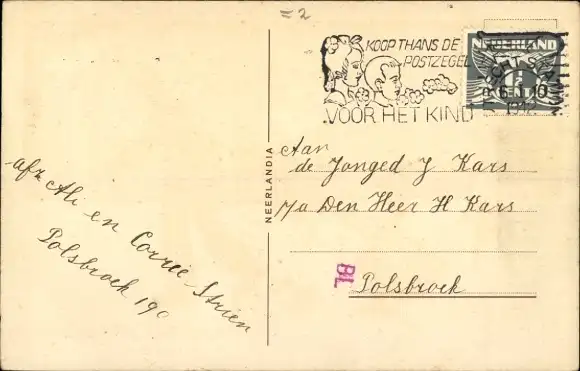 = 2
KOOP THANS DE
POSTZEGEL
VOOR HET KIND
NEDERLAND
NEERLANDIA
Aan
de Jonged J Kars
p/a Den Heer H Kars
Polsbroek
BL
afz Ali en Corrie Strien
Polsbroek 190